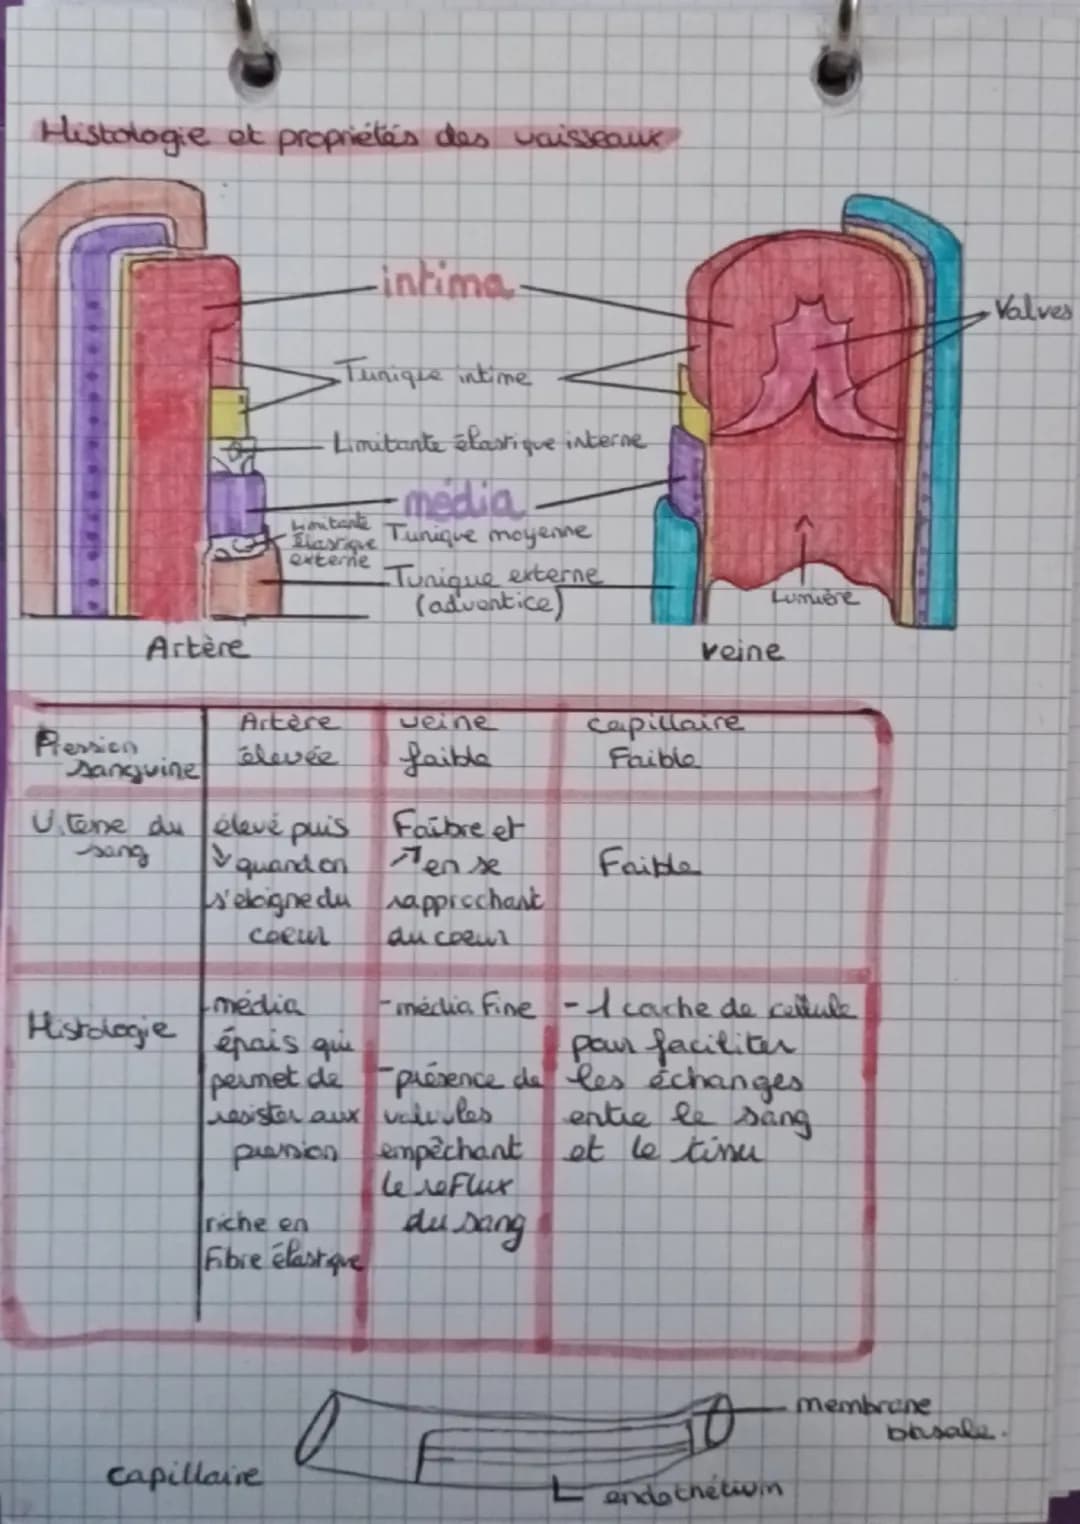 Histologie et propriétés des vaisseaux
intima
Valves
Tunique intime
Limitante élastique interne
média
Limitante
élastique
externe
Tunique moyenne
Tunique externe
(adventice)
Lumière
Artère
veine
Artère
veine
capillaire
Pression
sanguine
élevée
faible
Faible
Vitesse du
sang
élevé puis
↘ quand on
s'eloigne du
coeur
Faibre et
↗ en se
rapprochant
du coeur
Faible
Histologie
-média
épais qui
permet de
resister aux
pression
riche en
Fibre élastique
-média Fine
-présence de
valvules
empêchant
le reFlux
du sang
-1 couche de cellule
pour faciliter
les échanges
entre le sang
et le tissu
membrane
basale.
capillaire
endothélium